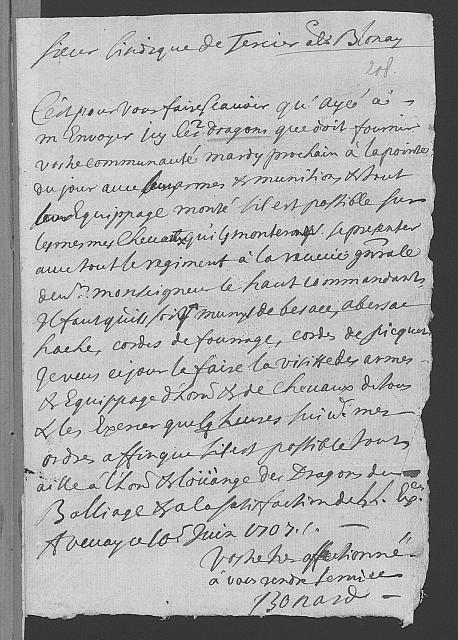 Sieur Sindique de Tercier et de Blonay
208.
C'est pour vous faire scavoir qu'Ayés à
m Envoyer icy les dragons que doit fournir
vostre communauté mardy prochain à la pointe
du jour avec leurs armes & munitions & tout
leur Equippage monté s'il est possible sur
les mesmes Chevaux qu'ils monteront se presenter
avec tout le regiment à la reveüe g'nrale
devt. monseigneur le haut commandant
Il faut qu'ils soit munys de besace, abersac
hache, cordes de fourrage, cordes de picquet
Je veux ce jour le faire la visitte des armes
& Equippage d'hom & de Chevaux de tous
& les Exercer quelq heures suivt. mes
ordres affinque s'il est possible tout
aille à l'hon & loüange des Dragons du
Balliage & a la satisfaction de LL. Exces.
A Vevay ce 10e Juin 1707.
Vostre tres affectionné
à vous rendre service
Bonard